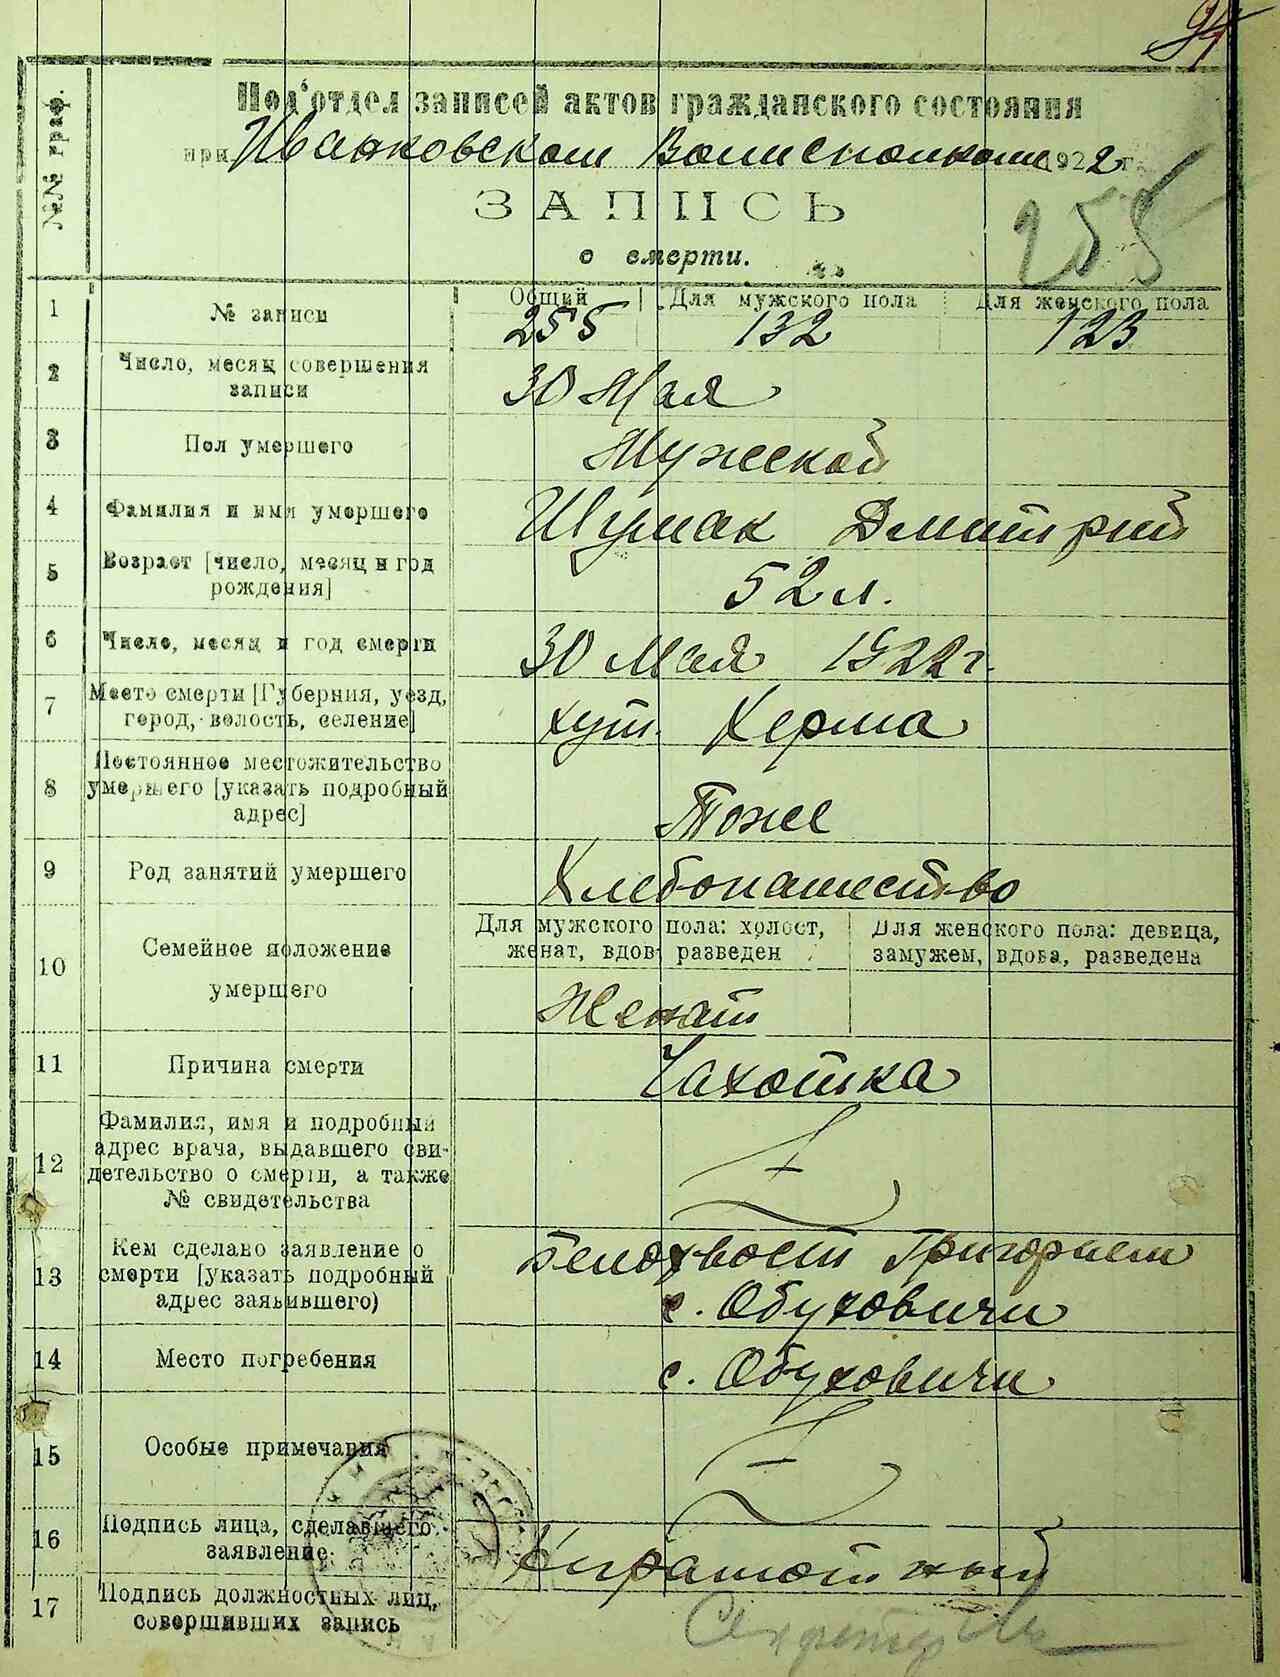 94
№№ граф.
Под'отдел записей актов гражданского состояния
при Иванковском Волисполкоме 1922 г.
255
ЗАПИСЬ
о смерти.
1 № записи Общий Для мужского пола Для женского пола
255 132 123
2 Число, месяц совершения записи 30 Мая
3 Пол умершего Мужской
4 Фамилия и имя умершего Шумак Дмитрий
5 Возраст [число, месяц и год рождения] 52 л.
6 Число, месяц и год смерти 30 Мая 1922 г.
7 Место смерти [Губерния, уезд, город, волость, селение] хут. Херма
8 Постоянное местожительство умершего [указать подробный адрес] Тоже
9 Род занятий умершего Хлебопашество
10 Семейное положение умершего
Для мужского пола: холост, женат, вдов, разведен
Для женского пола: девица, замужем, вдова, разведена
Женат
11 Причина смерти Чахотка
12 Фамилия, имя и подробный адрес врача, выдавшего свидетельство о смерти, а также № свидетельства
13 Кем сделано заявление о смерти [указать подробный адрес заявившего) Белохвост Григорием
с. Обуховичи
14 Место погребения с. Обуховичи
15 Особые примечания
16 Подпись лица, сделавшего заявление
17 Подпись должностных лиц, совершивших запись Секретар